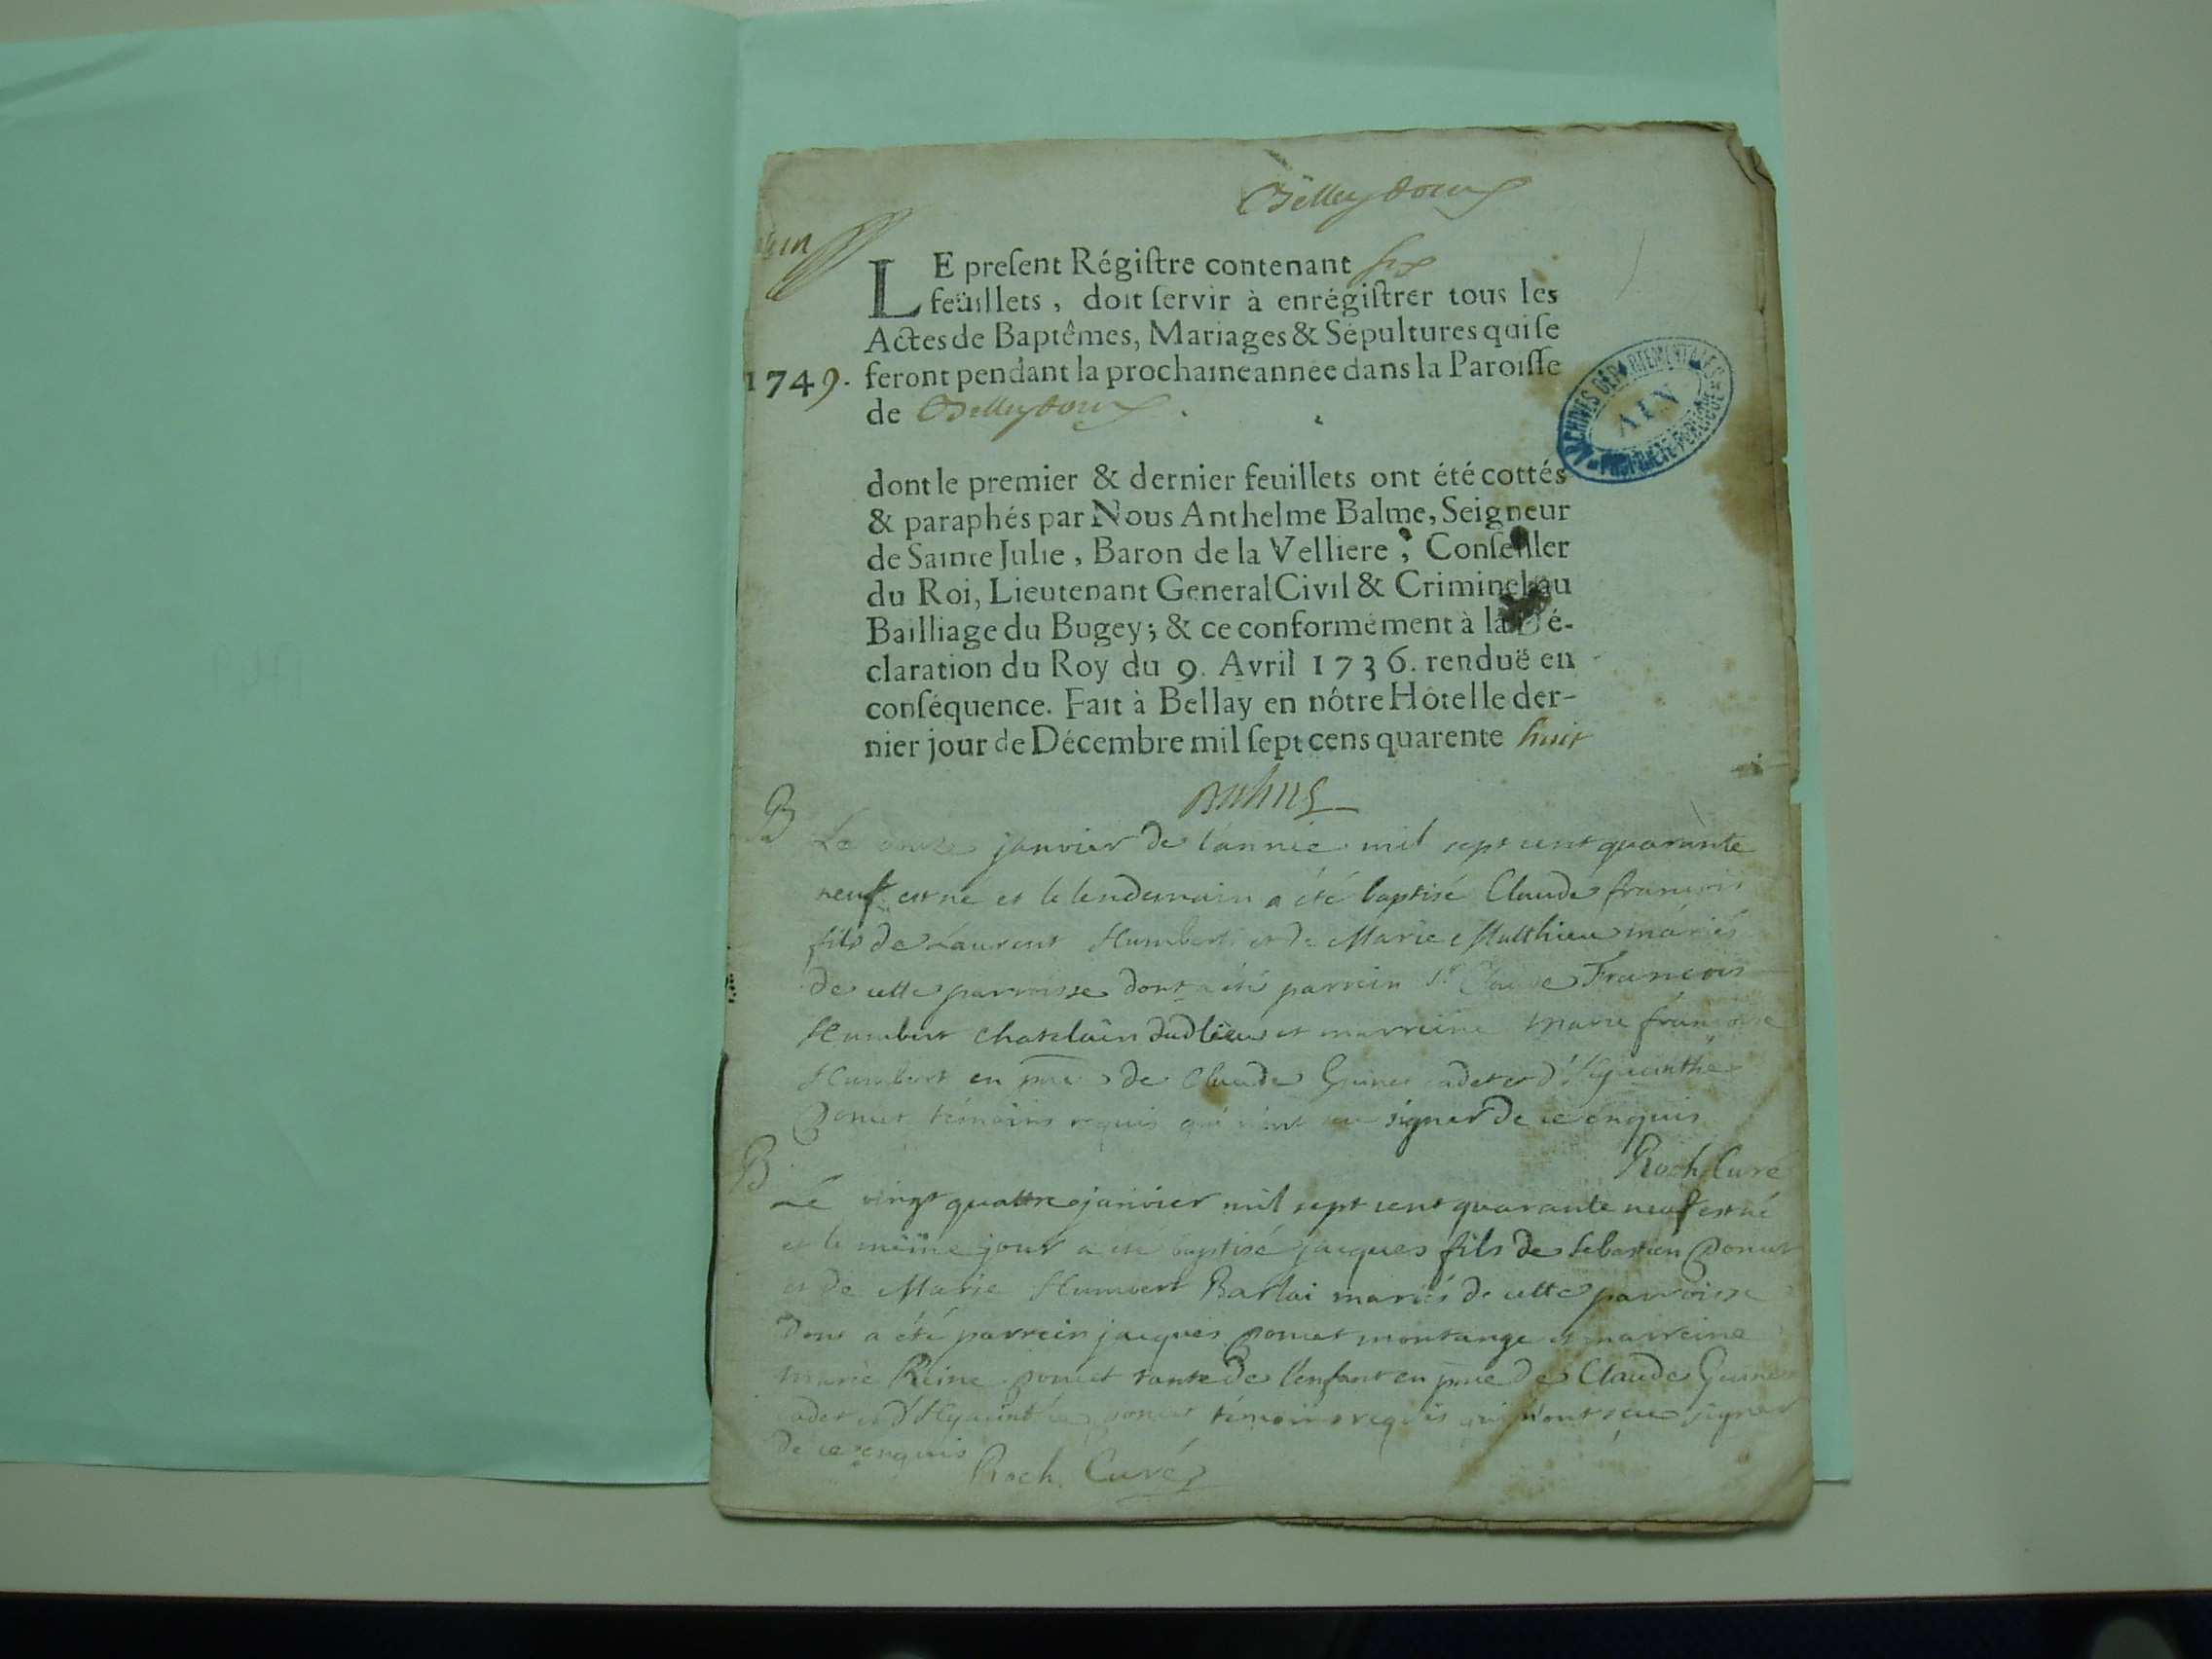 Belleydoux
LE preſent Régiſtre contenant six
feüillets, doit ſervir à enrégiſtrer tous les
Actes de Baptêmes, Mariages & Sépultures qui ſe
1749. feront pendant la prochaine année dans la Paroiſſe
de Belleydoux.
ARCHIVES DÉPARTEMENTALES
AIN
PROPRIÉTÉ PUBLIQUE
dont le premier & dernier feuillets ont été cottés
& paraphés par Nous Anthelme Balme, Seigneur
de Sainte Julie, Baron de la Velliere, Conſeiller
du Roi, Lieutenant General Civil & Criminel au
Bailliage du Bugey; & ce conformément à la Dé-
claration du Roy du 9. Avril 1736. renduë en
conſéquence. Fait à Bellay en nôtre Hôtel le der-
nier jour de Décembre mil ſept cens quarente huit
B
Le janvier de l'année mil sept cent quarante
neuf est né et le lendemain a été baptisé Claude françois
fils de Laurent Humbert et de Marie Matthieu mariés
de cette parroisse dont a été parrein Sr Claude François
Humbert chatelain dudlieu et marreine marie françoise
Humbert en pnce de Claude Guinet cadet et d'Hyacinthe
Poncet témoins requis qui n'ont sceu signer de ce enquis
Roch Curé
B
Le vingt quattre janvier mil sept cent quarante neuf est né
et le même jour a été baptisé jacques fils de Sebastien Poncet
et de Marie Humbert mariés de cette parroisse
dont a été parrein jacques Poncet montange et marreine
marie Reine poncet tante de l'enfant en pnce de Claude Guinet
cadet et d'Hyacinthe poncet témoins requis qui n'ont sceu signer
de ce enquis Roch Curé